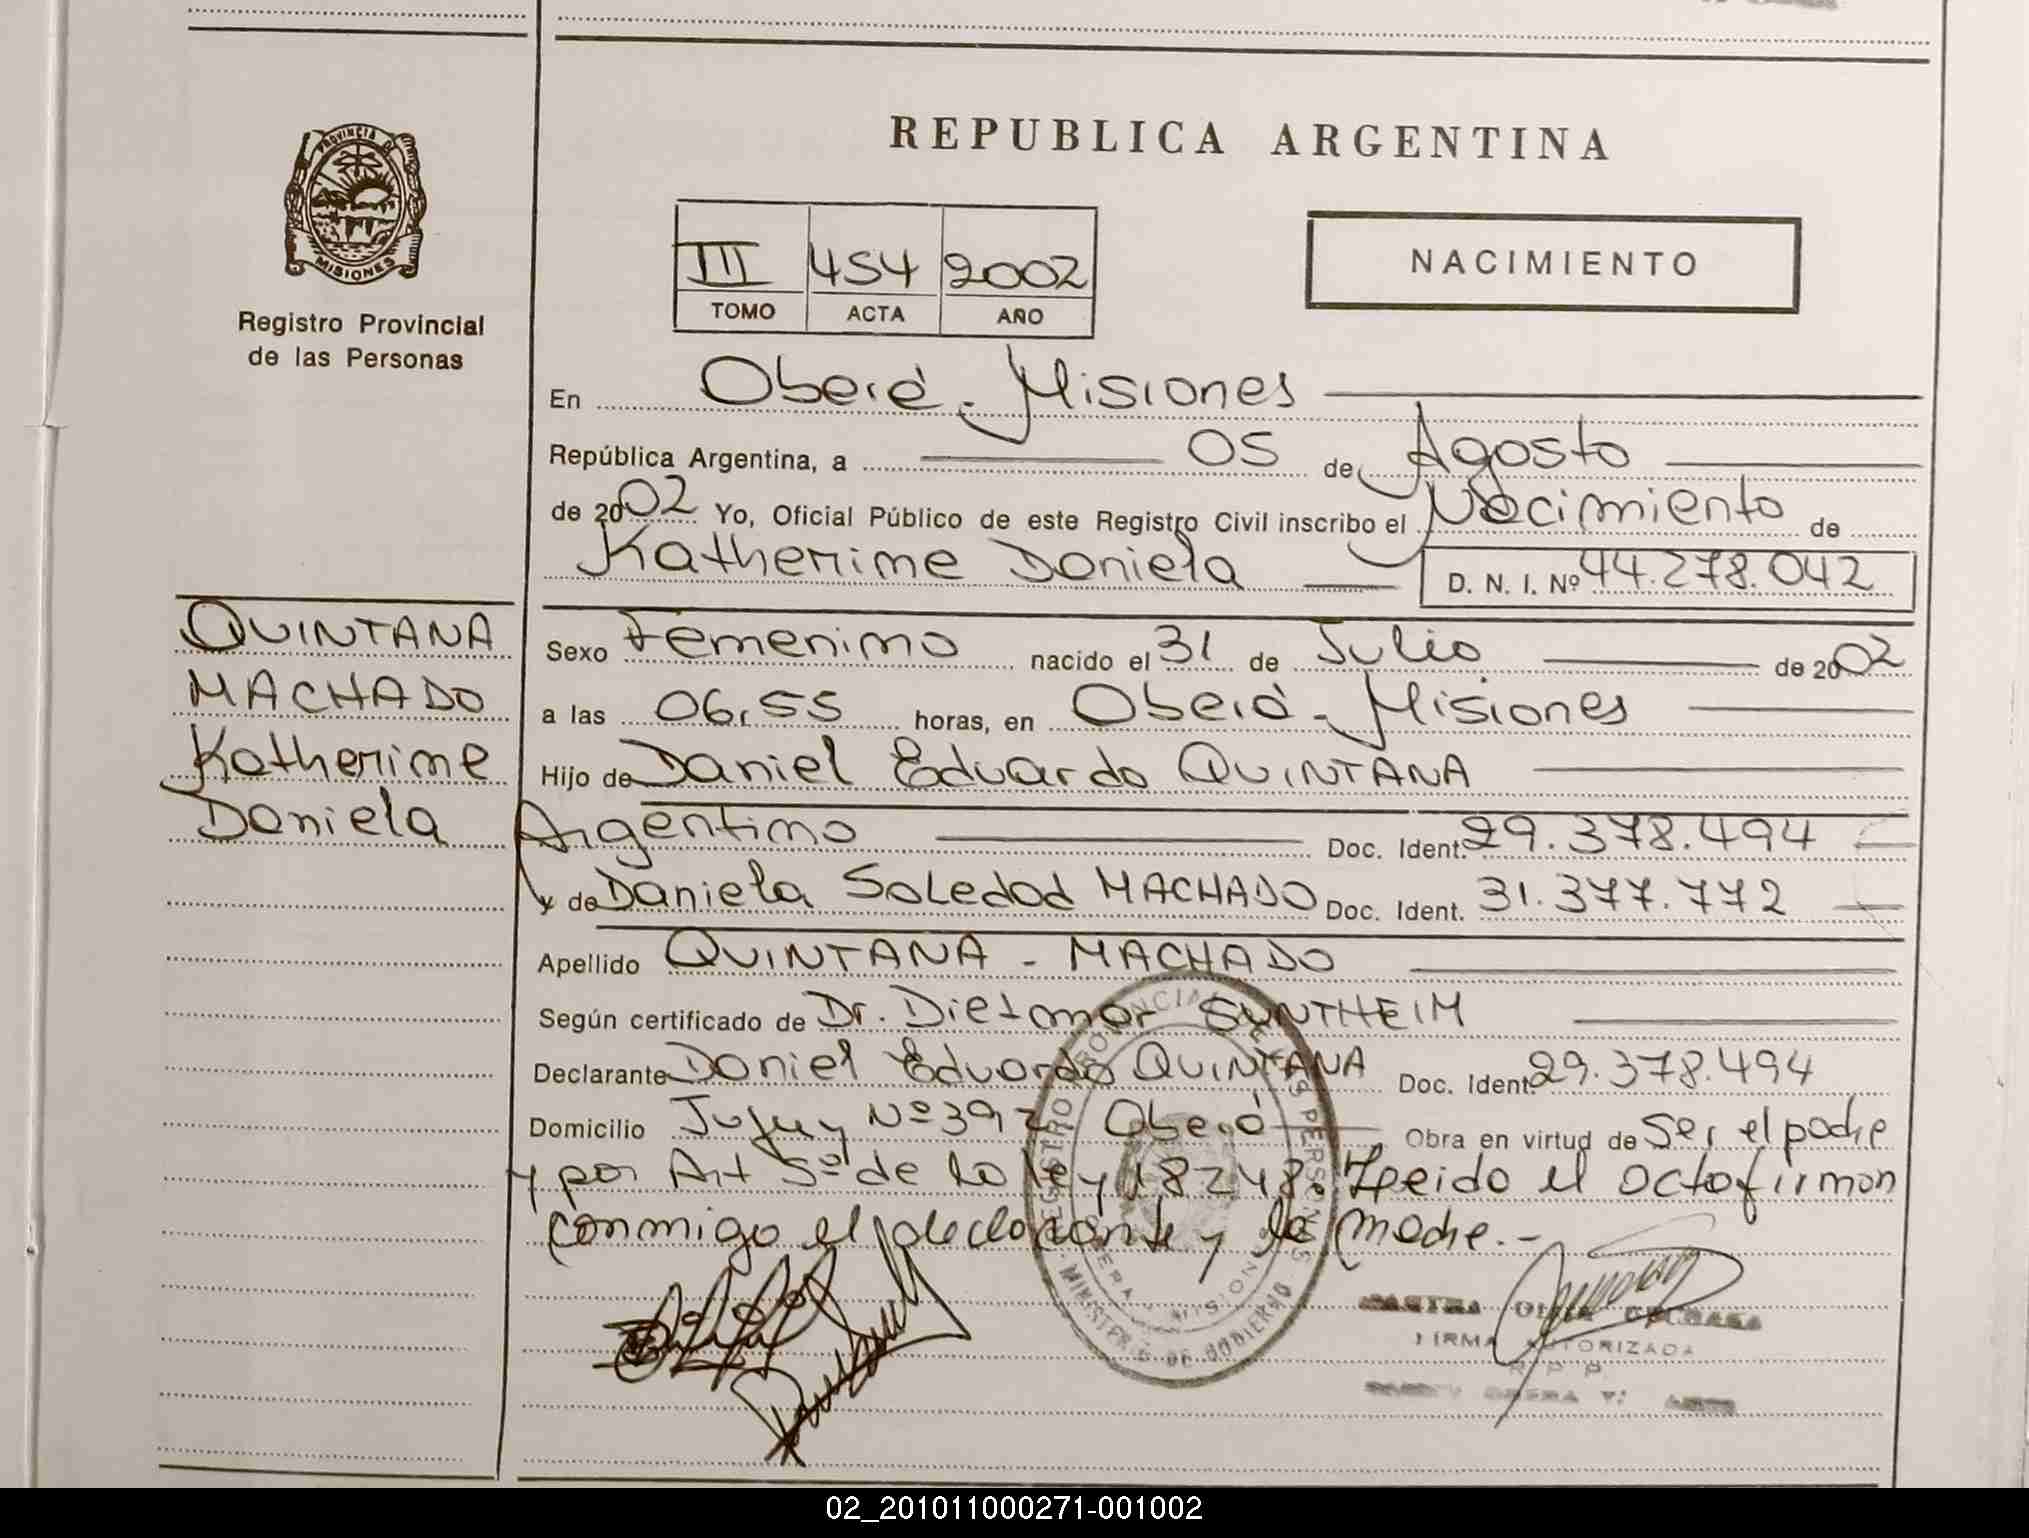 REPUBLICA ARGENTINA
PROVINCIA D
MISIONES
Registro Provincial
de las Personas
III 454 2002
TOMO ACTA AÑO
NACIMIENTO
En Oberá - Misiones
República Argentina, a 05 de Agosto
de 2002 Yo, Oficial Público de este Registro Civil inscribo el Nacimiento de
Katherine Daniela D. N. I. Nº 44.278.042
QUINTANA
MACHADO
Katherine
Daniela
Sexo Femenino nacido el 31 de Julio de 2002
a las 06,55 horas, en Oberá - Misiones
Hijo de Daniel Eduardo QUINTANA
Argentino Doc. Ident. 29.378.494
y de Daniela Soledad MACHADO Doc. Ident. 31.377.772
Apellido QUINTANA - MACHADO
Según certificado de Dr. Dietmar SUNTHEIM
Declarante Daniel Eduardo QUINTANA Doc. Ident. 29.378.494
Domicilio Jujuy Nº 392 Oberá Obra en virtud de Ser el padre
y por Art 5º de la ley 18248. Leido el acta firman
conmigo el declarante y la madre.-
REGISTRO PROVINCIAL DE LAS PERSONAS
MINISTERIO DE GOBIERNO
OBERA - MISIONES
FIRMA AUTORIZADA
R P P
OBERA
02_201011000271-001002